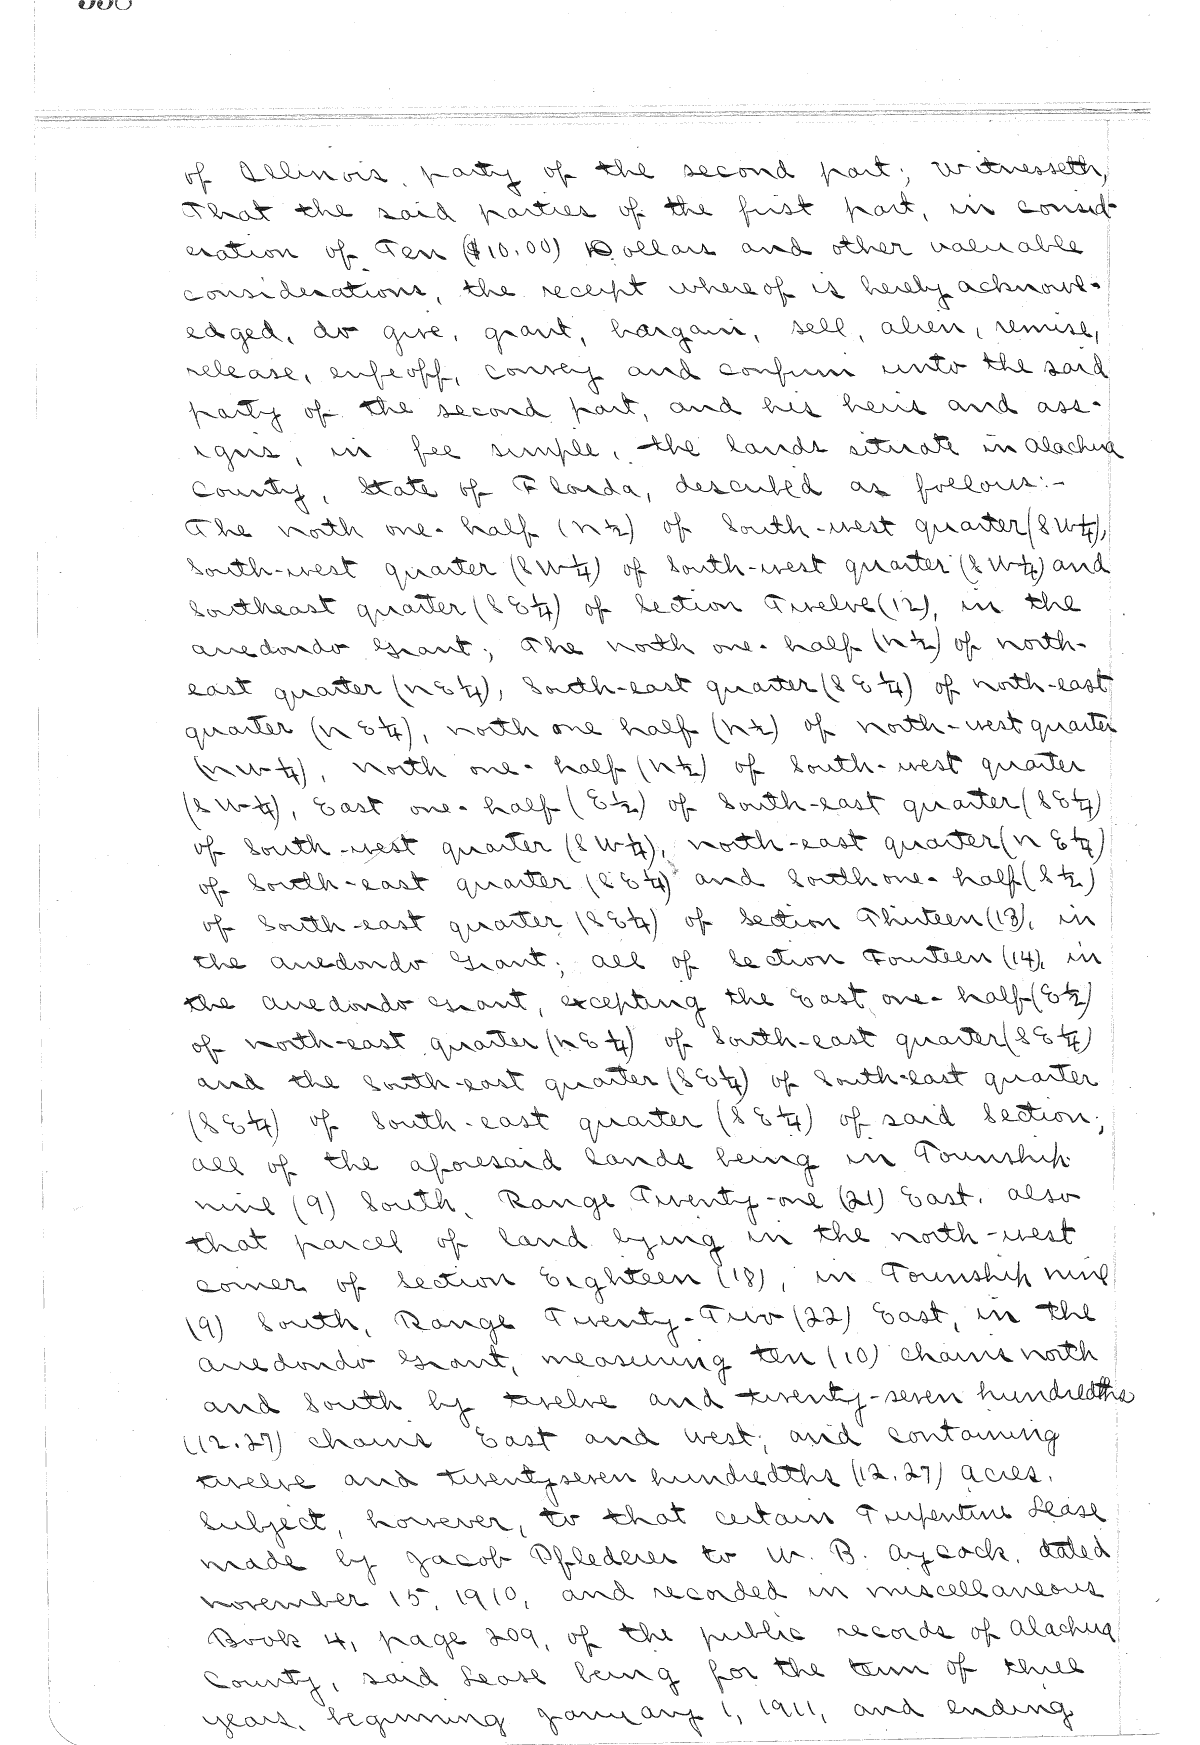 of Illinois, party of the second part; Witnesseth,
That the said parties of the first part, in consid-
eration of Ten ($10.00) Dollars and other valuable
considerations, the receipt whereof is hereby acknowl-
edged, do give, grant, bargain, sell, alien, remise,
release, enfeoff, convey and confirm unto the said
party of the second part, and his heirs and ass-
igns, in fee simple, the lands situate in Alachua
County, State of Florida, described as follows:-
The north one-half (N½) of South-west quarter (SW¼),
South-west quarter (SW¼) of South-west quarter (SW¼) and
Southeast quarter (SE¼) of Section Twelve (12), in the
Arredondo Grant; The north one-half (N½) of north-
east quarter (NE¼), South-east quarter (SE¼) of north-east
quarter (NE¼), north one half (N½) of north-west quarter
(NW¼), north one-half (N½) of South-west quarter
(SW¼), East one-half (E½) of South-east quarter (SE¼)
of South-west quarter (SW¼), north-east quarter (NE¼)
of South-east quarter (SE¼) and South one-half (S½)
of South-east quarter (SE¼) of Section Thirteen (13), in
the Arredondo Grant; all of Section Fourteen (14), in
the Arredondo Grant, excepting the East one-half (E½)
of north-east quarter (NE¼) of South-east quarter (SE¼)
and the South-east quarter (SE¼) of South-east quarter
(SE¼) of South-east quarter (SE¼) of said Section;
all of the aforesaid lands being in Township
nine (9) South, Range Twenty-one (21) East. also
that parcel of land lying in the north-west
corner of Section Eighteen (18), in Township nine
(9) South, Range Twenty-Two (22) East, in the
Arredondo Grant, measuring ten (10) chains north
and South by twelve and twenty-seven hundredths
(12.27) chains East and west; and containing
twelve and twenty seven hundredths (12.27) acres.
Subject, however, to that certain Turpentine Lease
made by Jacob Pflederer to W. B. Aycock, dated
November 15, 1910, and recorded in miscellaneous
Book 4, page 209, of the public records of Alachua
County, said Lease being for the term of three
years, beginning January 1, 1911, and ending